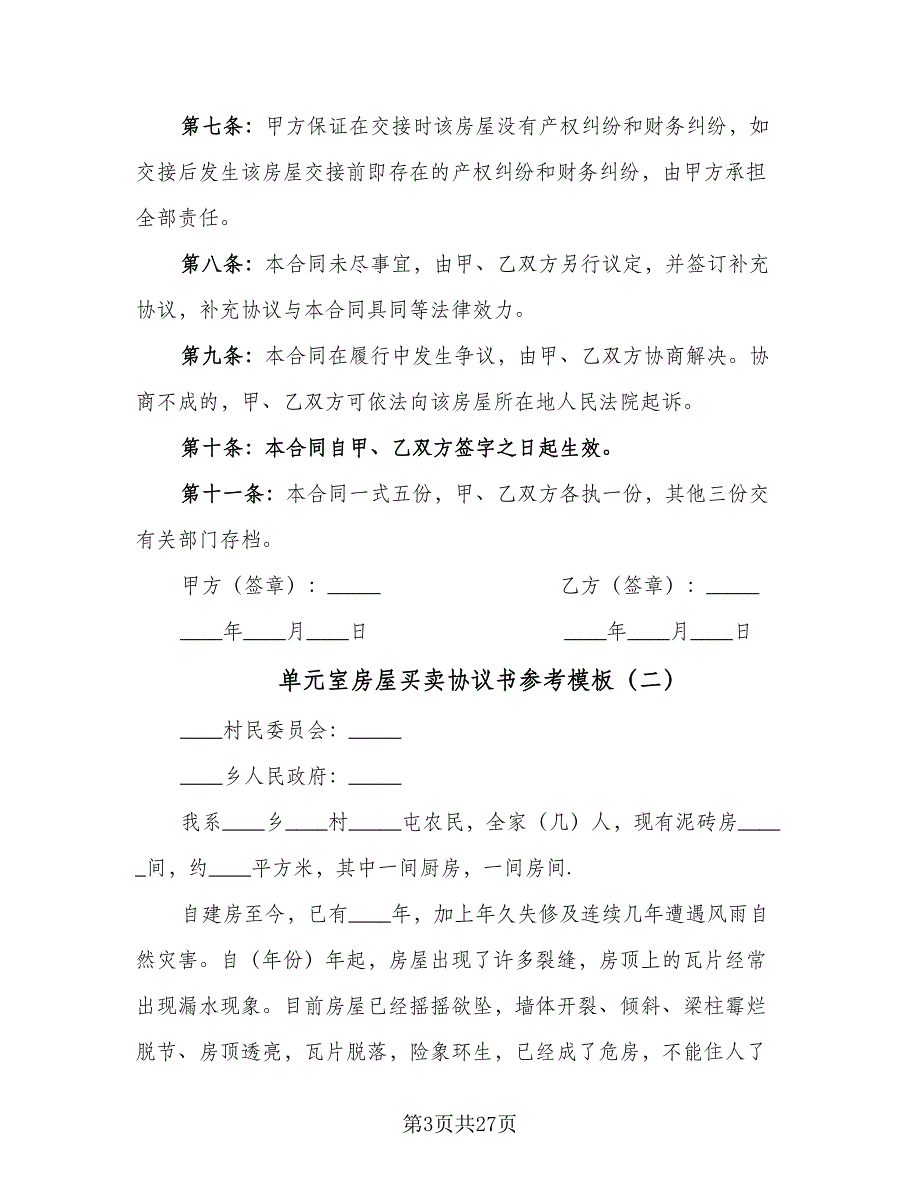 第七条：甲方保证在交接时该房屋没有产权纠纷和财务纠纷，如
交接后发生该房屋交接前即存在的产权纠纷和财务纠纷，由甲方承担
全部责任。
第八条：本合同未尽事宜，由甲、乙双方另行议定，并签订补充
协议，补充协议与本合同具同等法律效力。
第九条：本合同在履行中发生争议，由甲、乙双方协商解决。协
商不成的，甲、乙双方可依法向该房屋所在地人民法院起诉。
第十条：本合同自甲、乙双方签字之日起生效。
第十一条：本合同一式五份，甲、乙双方各执一份，其他三份交
有关部门存档。
甲方（签章）：_____ 乙方（签章）：_____
____年____月____日 ____年____月____日
单元室房屋买卖协议书参考模板（二）
____村民委员会：_____
____乡人民政府：_____
我系____乡____村_____屯农民，全家（几）人，现有泥砖房____
_间，约____平方米，其中一间厨房，一间房间.
自建房至今，已有____年，加上年久失修及连续几年遭遇风雨自
然灾害。自（年份）年起，房屋出现了许多裂缝，房顶上的瓦片经常
出现漏水现象。目前房屋已经摇摇欲坠，墙体开裂、倾斜、梁柱霉烂
脱节、房顶透亮，瓦片脱落，险象环生，已经成了危房，不能住人了
第3页共27页